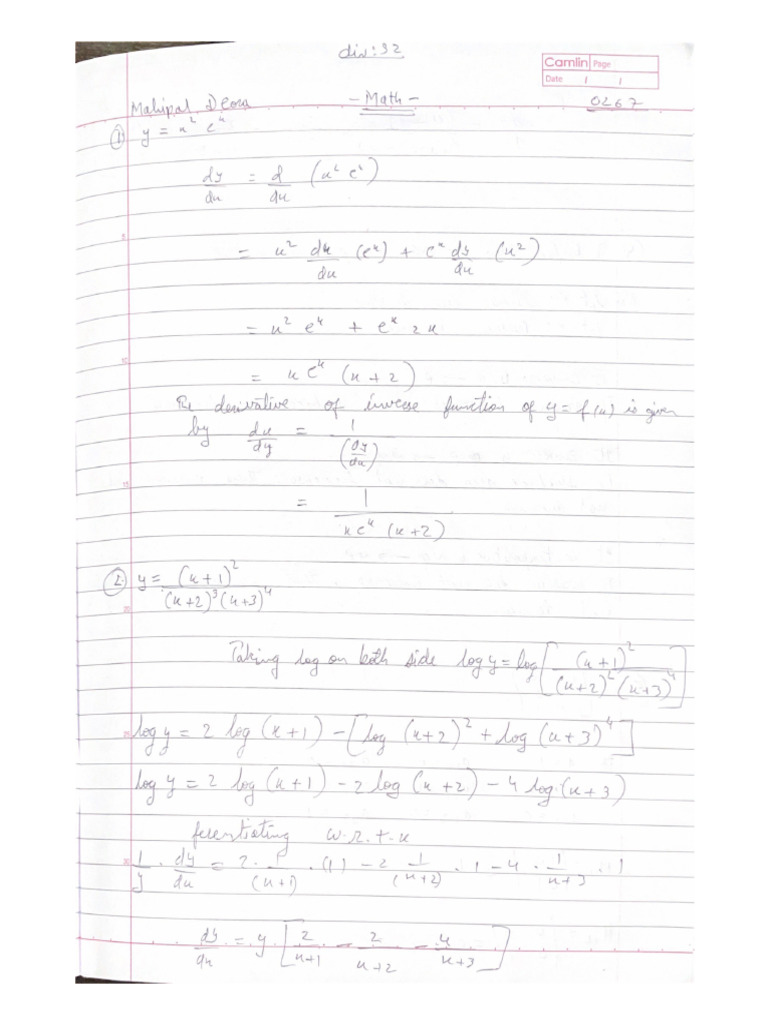 div: 32
Camlin Page
Date / /
Mahipal Deora - Math - 0267
① y = x² eˣ
dy/dx = d/dx (x² eˣ)
5
= x² dx/dx (eˣ) + eˣ dy/dx (x²)
= x² eˣ + eˣ 2x
10
= x eˣ (x + 2)
derivative of inverse function of y = f(x) is given
by dx/dy = 1/(dy/dx)
15
= 1/(x eˣ (x+2))
② y = (x+1)²/((x+2)³ (x+3)⁴)
20
Taking log on both side log y = log [(x+1)²/((x+2)² (x+3)⁴)]
25 log y = 2 log (x+1) - [log (x+2)² + log (x+3)⁴]
log y = 2 log (x+1) - 2 log (x+2) - 4 log (x+3)
ferentiating w.r.t. x
30 1/y · dy/dx = 2 · 1/(x+1) · (1) - 2 1/(x+2) · 1 - 4 · 1/(x+3) · 1
dy/dx = y [2/(x+1) - 2/(x+2) - 4/(x+3)]